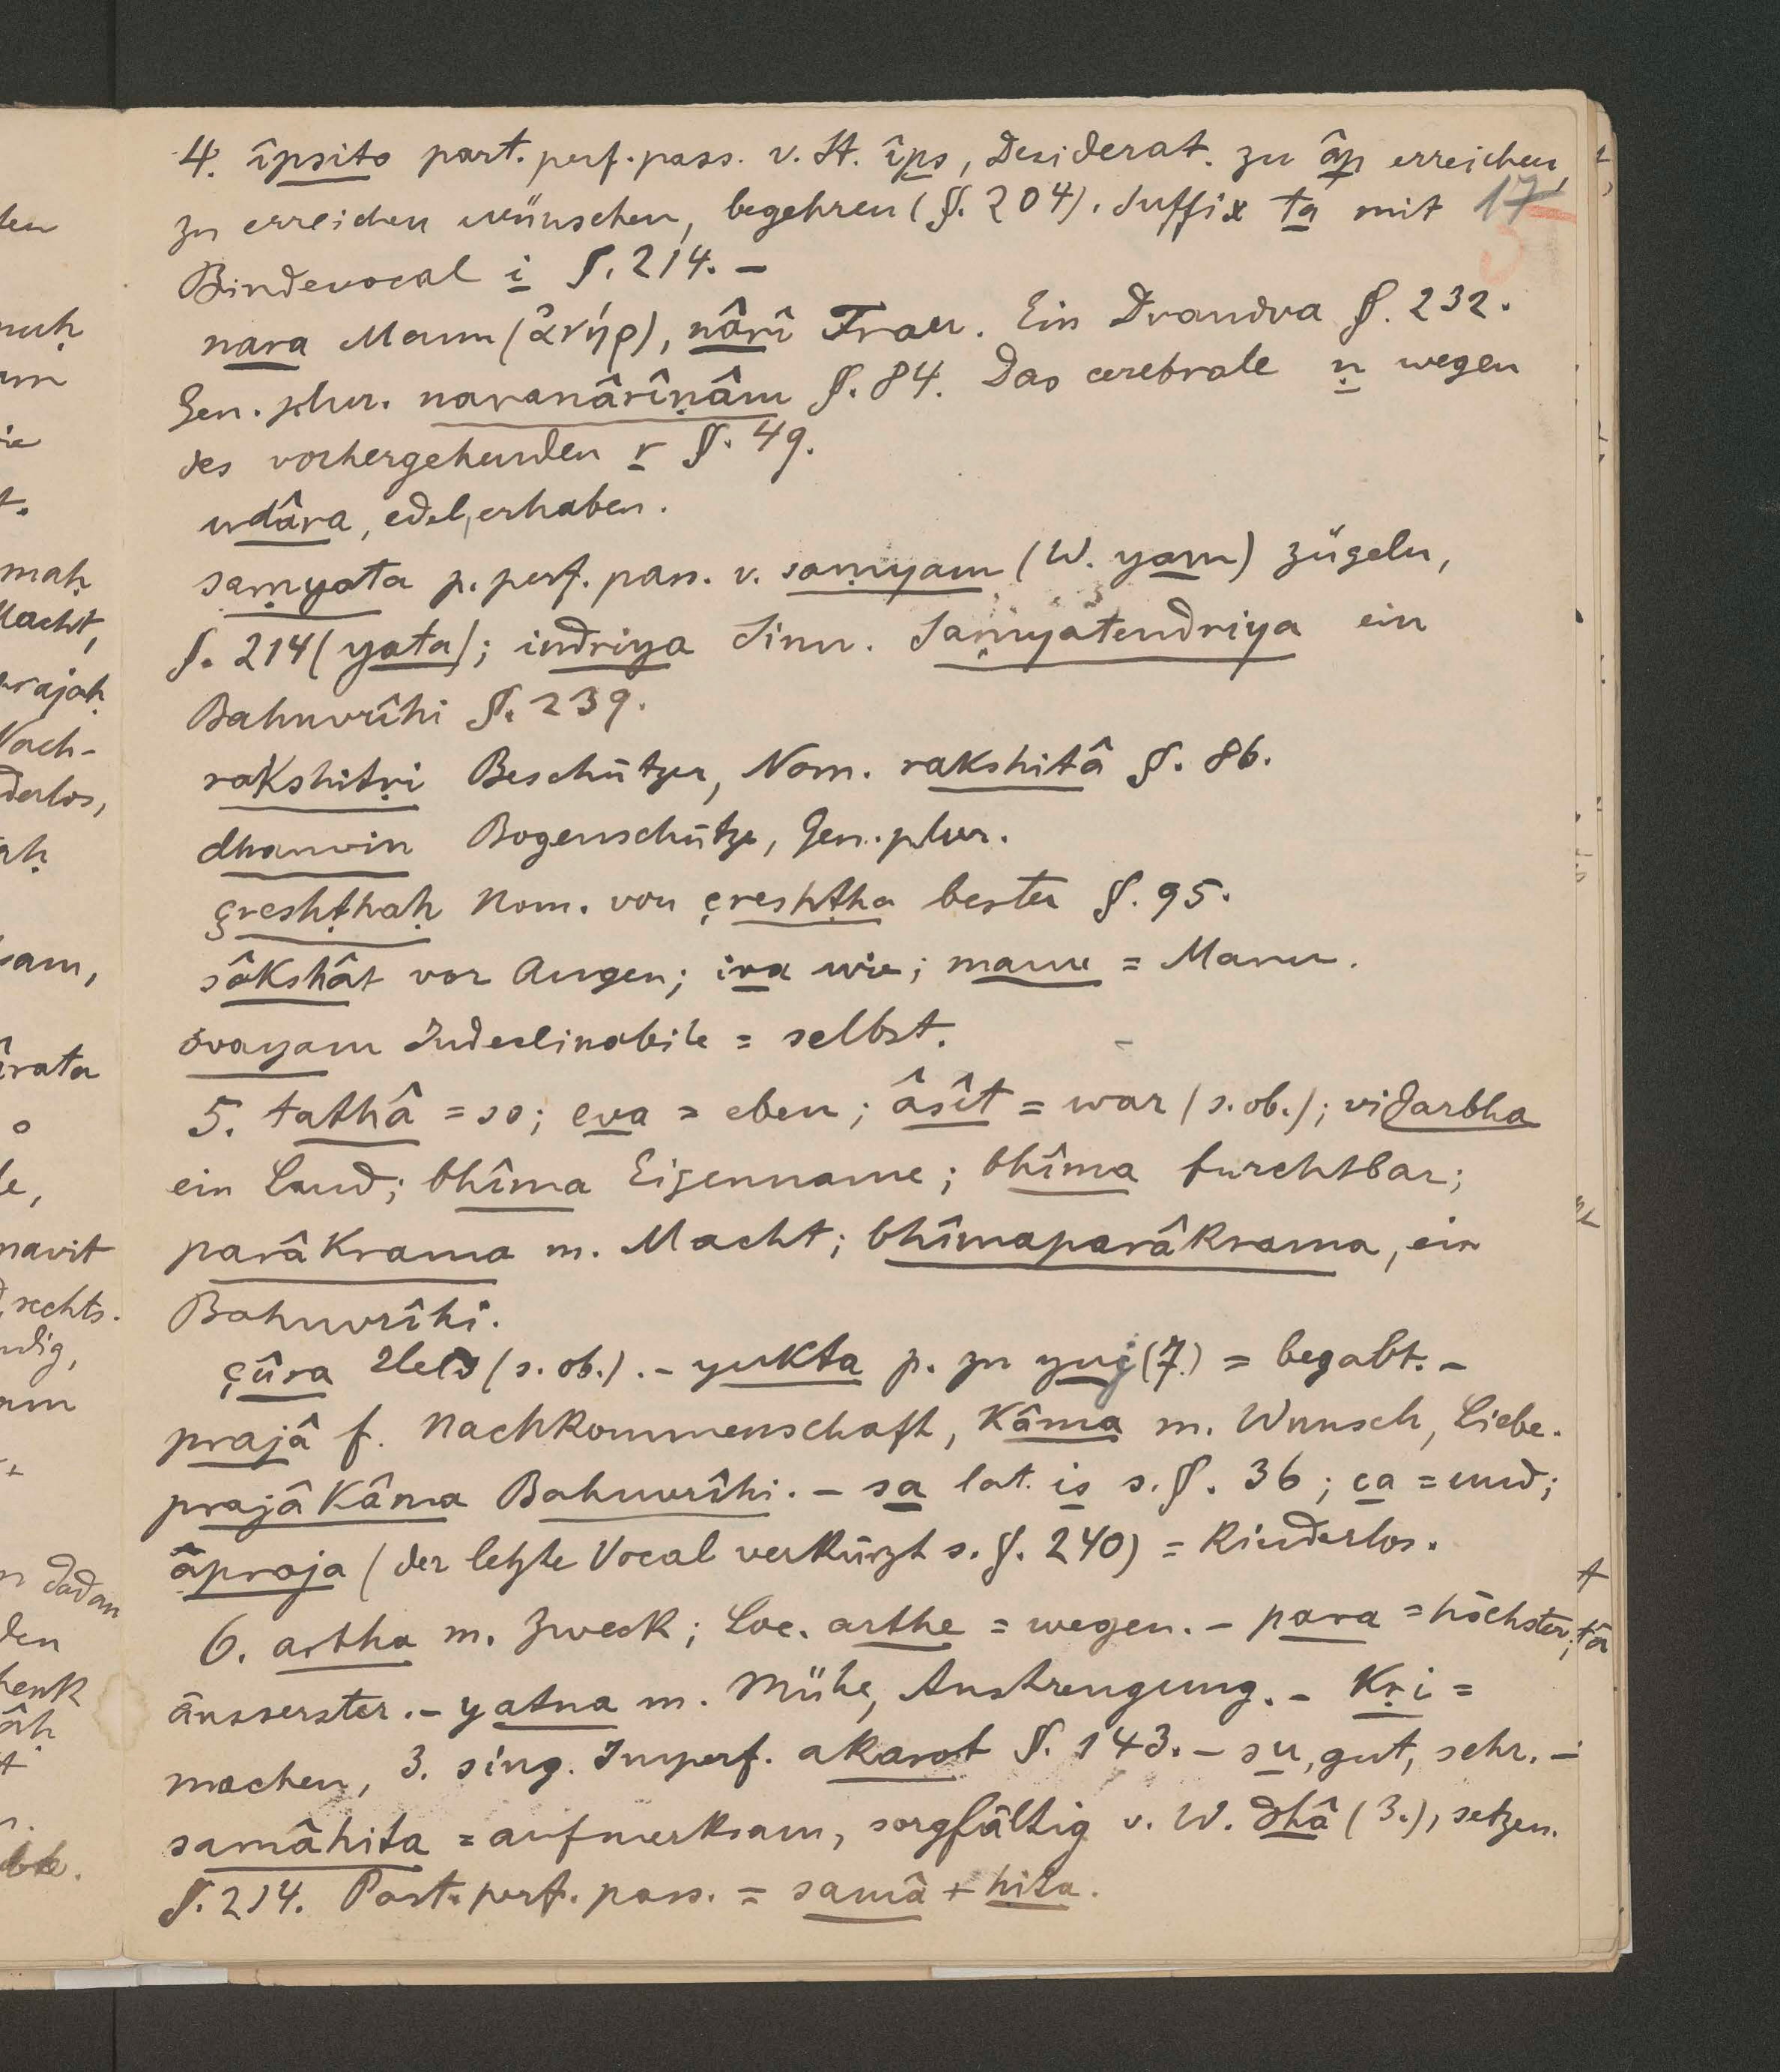 4. îpsito part. perf. pass. v. St. îps, Desiderat. zu âp erreichen,
zu erreichen wünschen, begehren (§. 204). Suffix ta mit 17
Bindevocal i §. 214. –
nara Mann (ἀνήρ), nârî Frau. Ein Dvandva §. 232.
Gen. plur. naranârîṇâm §. 84. Das cerebrale ṇ wegen
des vorhergehenden r §. 49.
udâra, edel, erhaben.
saṃyata p. perf. pass. v. saṃyam (W. yam) zügeln,
§. 214 (yata); indriya Sinn. Saṃyatendriya ein
Bahuvrîhi §. 239.
rakshitṛi Beschützer, Nom. rakshitâ §. 86.
dhanvin Bogenschütze, Gen. plur.
çreshṭhaḥ Nom. von çreshṭha bester §. 95.
sâkshât vor Augen; iva wie; manu = Manu.
svayam Indeclinabile = selbst.
5. tathâ = so; eva = eben; âsît = war (s. ob.); vidarbha
ein Land; bhîma Eigenname; bhîma furchtbar;
parâkrama m. Macht; bhîmaparâkrama, ein
Bahuvrîhi.
çûra Held (s. ob.). – yukta p. zu yuj (7.) = begabt. –
prajâ f. Nachkommenschaft, kâma m. Wunsch, Liebe.
prajâkâma Bahuvrîhi. – sa lat. is s. §. 36; ca = und;
âpraja (der letzte Vocal verkürzt s. §. 240) = kinderlos.
6. artha m. Zweck; Loc. arthe = wegen. – para = höchster,
äusserster. – yatna m. Mühe, Anstrengung. – Kṛi =
machen, 3. sing. Imperf. akarot §. 143. – su, gut, sehr. –
samâhita = aufmerksam, sorgfältig v. W. dhâ (3.), setzen.
§. 214. Part. perf. pass. = samâ + hita.